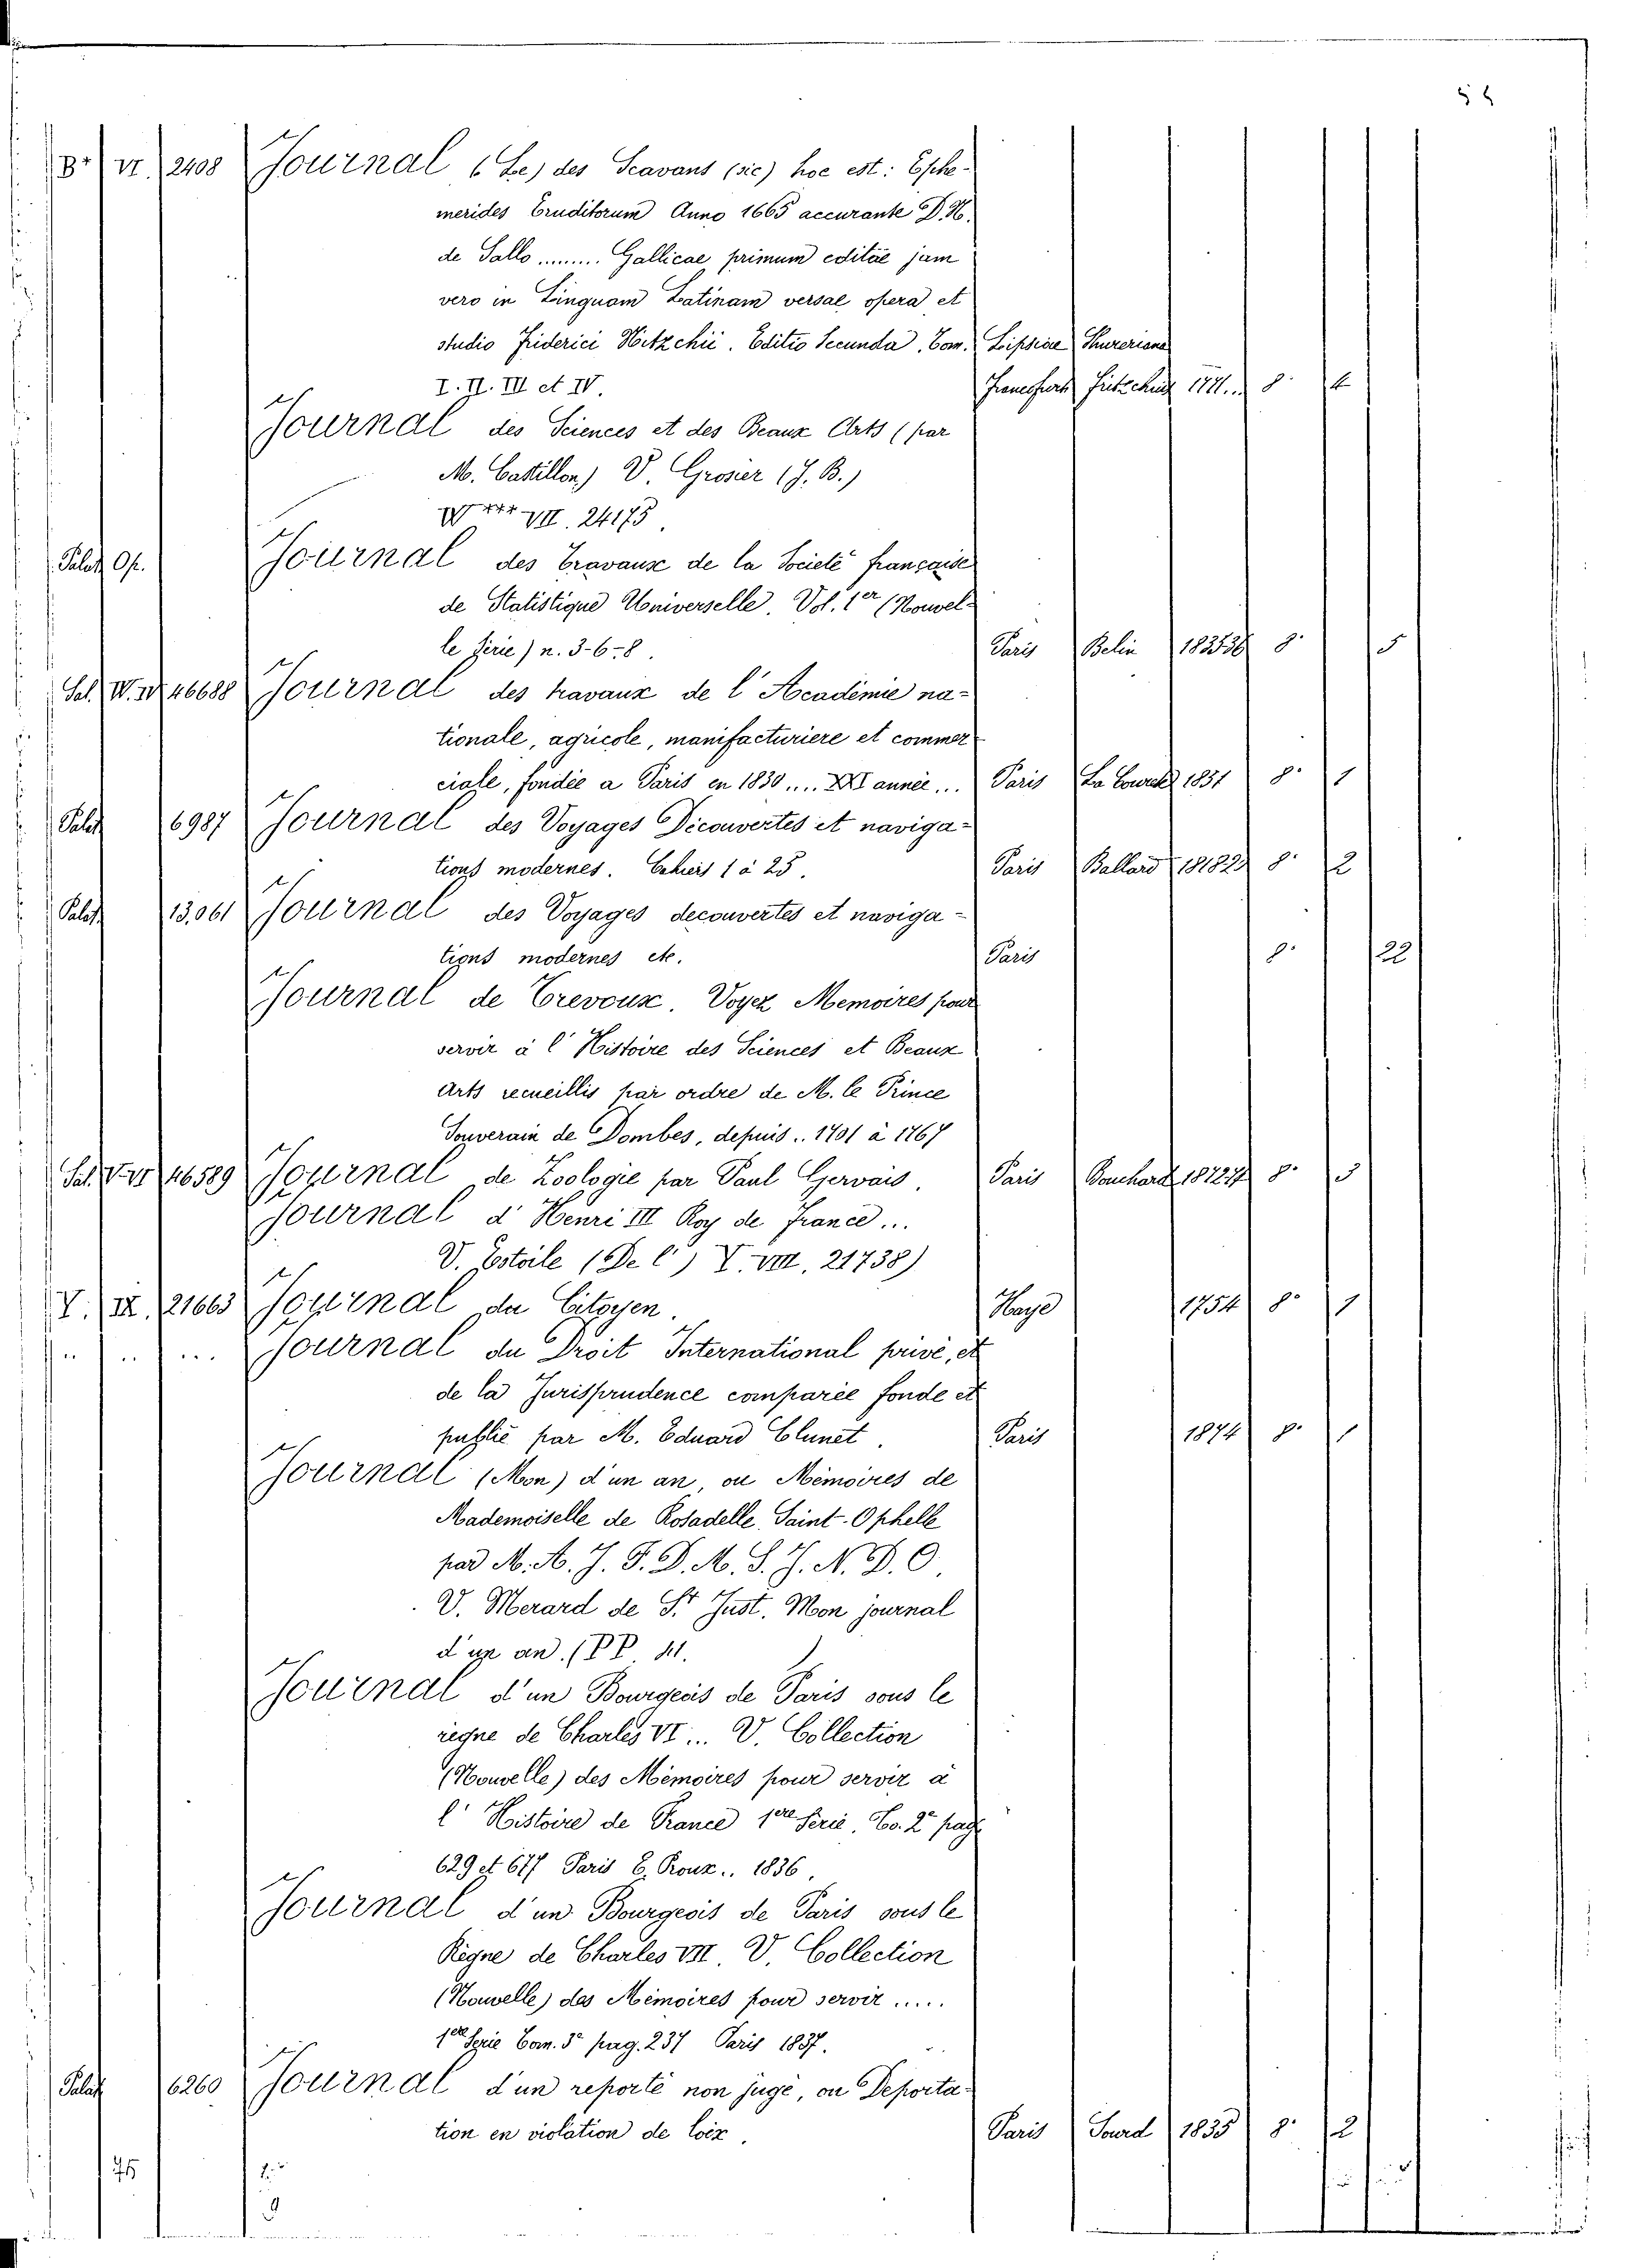 VI. 2408 Journal (Le) des Scavans (sic) hoc est: Ephe-
merides Eruditorum Anno 1665 accurante D. H.
de Sallo ........ Gallicae primum editae jam
vero in Linguam Latinam versae opera et
studio Friderici Nitzchii. Editio Secunda. Tom. Lipsiae
I. II. III et IV. 8° 4
Journal des Sciences et des Beaux Arts (par
M. Castillon) V. Grosier (J. B.)
VII. 24175.
Palat. Op. Journal des Travaux de la Societé française
de Statistique Universelle. Vol. 1er (Nouvel-
le Serie) n. 3-6-8. Paris Belin 8° 5
Sal. 46688 Journal des travaux de l'Academie na-
tionale, agricole, manifacturiere et commer
ciale, fondée a Paris en 1830.... XXI année... Paris 1851 8° 1
Palat. 6987 Journal des Voyages Découvertes et naviga-
tions modernes. Cahiers 1 à 25. Paris Ballard 8° 2
Palat. 13,061 Journal des Voyages decouvertes et naviga-
tions modernes etc. Paris 8° 22
Journal de Trevoux. Voyez Memoires pour
servir à l'Histoire des Sciences et Beaux
Arts recueillis par ordre de M. le Prince
Souverain de Dombes, depuis.. 1701 à 1767
Sal. 46589 Journal de Zoologie par Paul Gervais. Paris Bouchard 8°
Journal d'Henri III Roy de France...
V. Estoile (De l') V. VIII. 21738)
V. IX. 21663 Journal du Citoyen. Haye 1754 8° 1
.. .. ... Journal du Droit International privé, et
de la Jurisprudence comparée fonde et
publié par M. Eduard Clunet. Paris 1874 8° 1
Journal (Mon) d'un an, ou Mémoires de
Mademoiselle de Rosadelle Saint-Ophelle
par M. A. J. F. D. M. S. J. N. D. O.
V. Merard de St. Just. Mon journal
d'un an. (PP. 41.
Journal d'un Bourgeois de Paris sous le
regne de Charles VI... V. Collection
(Nouvelle) des Mémoires pour servir à
l'Histoire de France 1ere Serie. To. 2° pag
629 et 677 Paris E. Proux.. 1836.
Journal d'un Bourgeois de Paris sous le
Régne de Charles VII. V. Collection
(Nouvelle) des Mémoires pour servir .....
1ere Serie Tom. 3° pag. 237 Paris 1837.
Palat. 6260 Journal d'un reporté non jugé, ou Deporta-
tion en violation de loix. Paris Sourd 1835 8° 2